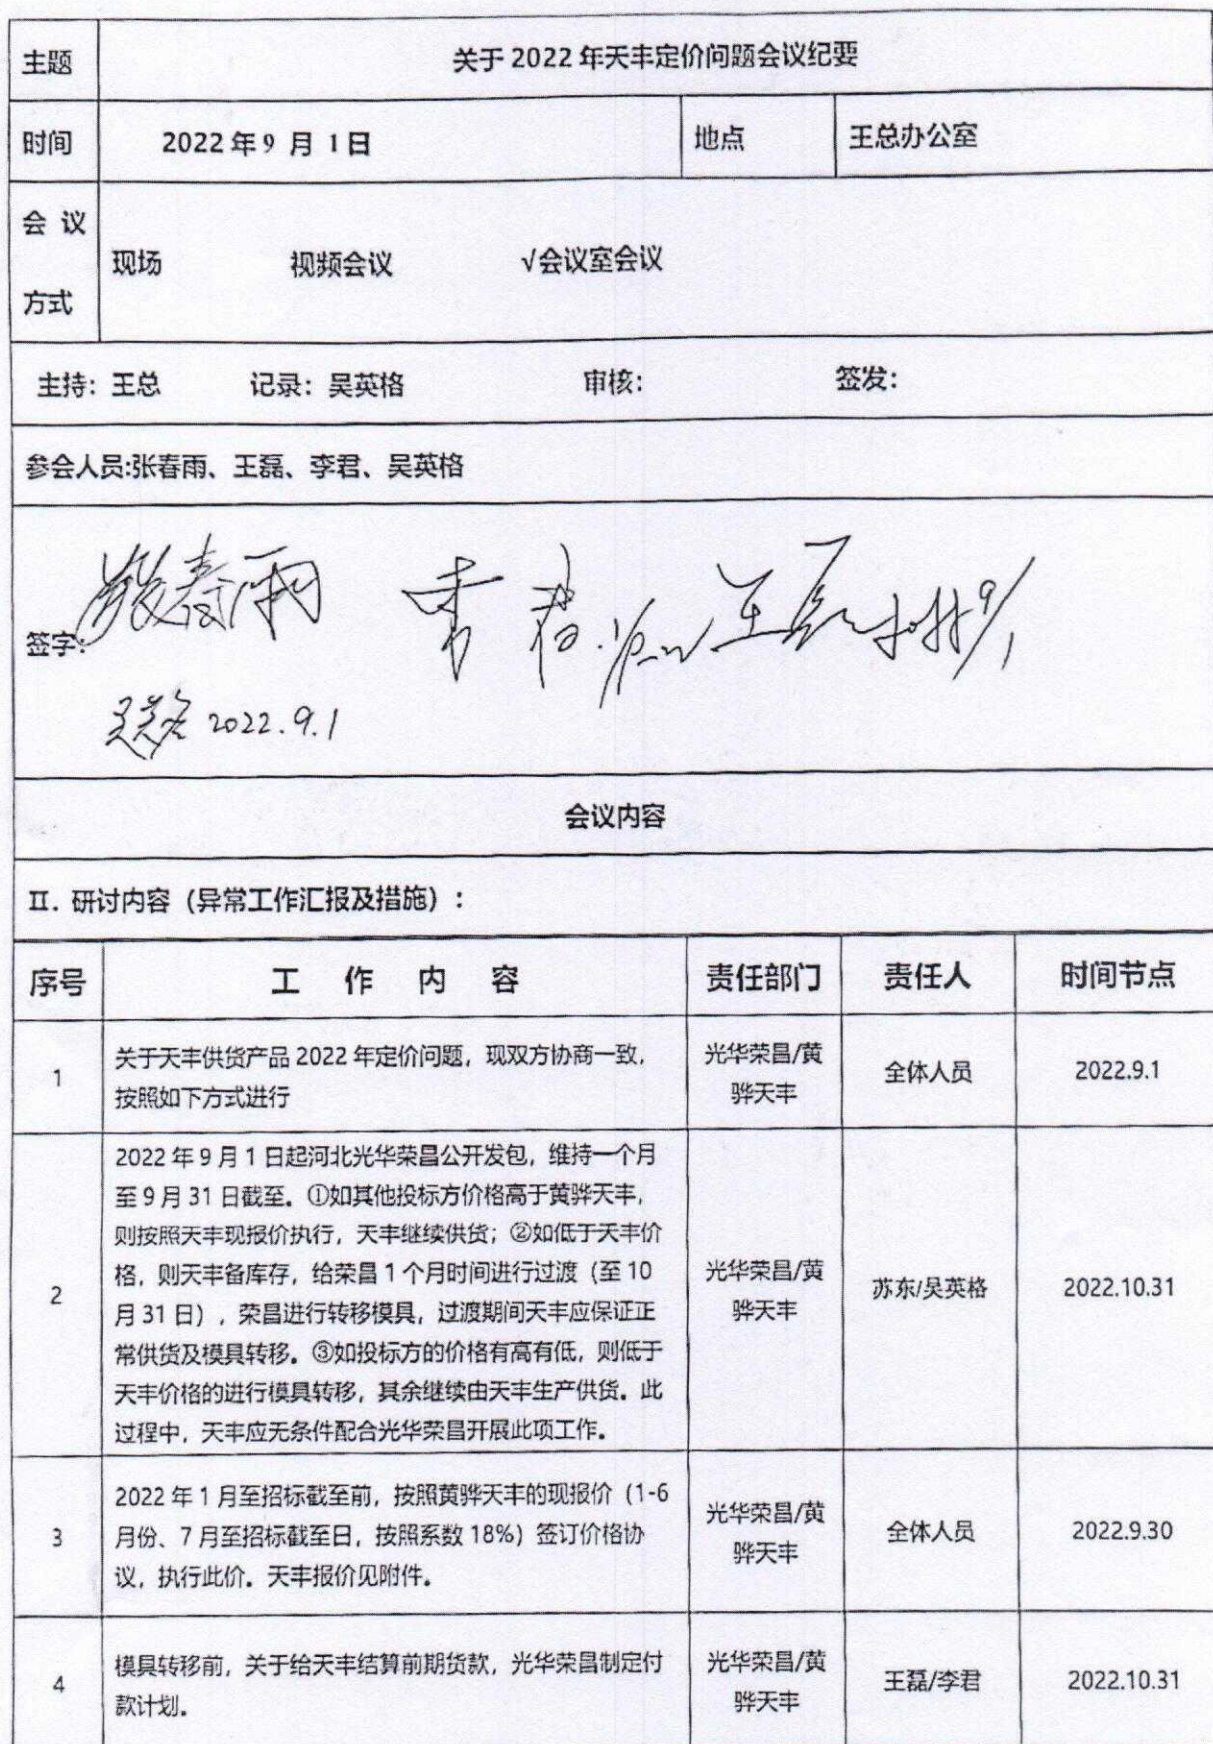 主题 关于 2022 年天丰定价问题会议纪要
时间 2022 年 9 月 1 日 地点 王总办公室
会 议
方式
现场 视频会议 √会议室会议
主持：王总 记录：吴英格 审核： 签发：
参会人员:张春雨、王磊、李君、吴英格
签字：
张春雨 李君 王磊 2022.9.1
吴英格 2022.9.1
会议内容
Ⅱ. 研讨内容（异常工作汇报及措施）：
序号 工 作 内 容 责任部门 责任人 时间节点
1
关于天丰供货产品 2022 年定价问题，现双方协商一致，
按照如下方式进行
光华荣昌/黄
骅天丰
全体人员
2022.9.1
2
2022 年 9 月 1 日起河北光华荣昌公开发包，维持一个月
至 9 月 31 日截至。①如其他投标方价格高于黄骅天丰，
则按照天丰现报价执行，天丰继续供货；②如低于天丰价
格，则天丰备库存，给荣昌 1 个月时间进行过渡（至 10
月 31 日），荣昌进行转移模具，过渡期间天丰应保证正
常供货及模具转移。③如投标方的价格有高有低，则低于
天丰价格的进行模具转移，其余继续由天丰生产供货。此
过程中，天丰应无条件配合光华荣昌开展此项工作。
光华荣昌/黄
骅天丰
苏东/吴英格
2022.10.31
3
2022 年 1 月至招标截至前，按照黄骅天丰的现报价（1-6
月份、7 月至招标截至日，按照系数 18%）签订价格协
议，执行此价。天丰报价见附件。
光华荣昌/黄
骅天丰
全体人员
2022.9.30
4
模具转移前，关于给天丰结算前期货款，光华荣昌制定付
款计划。
光华荣昌/黄
骅天丰
王磊/李君
2022.10.31